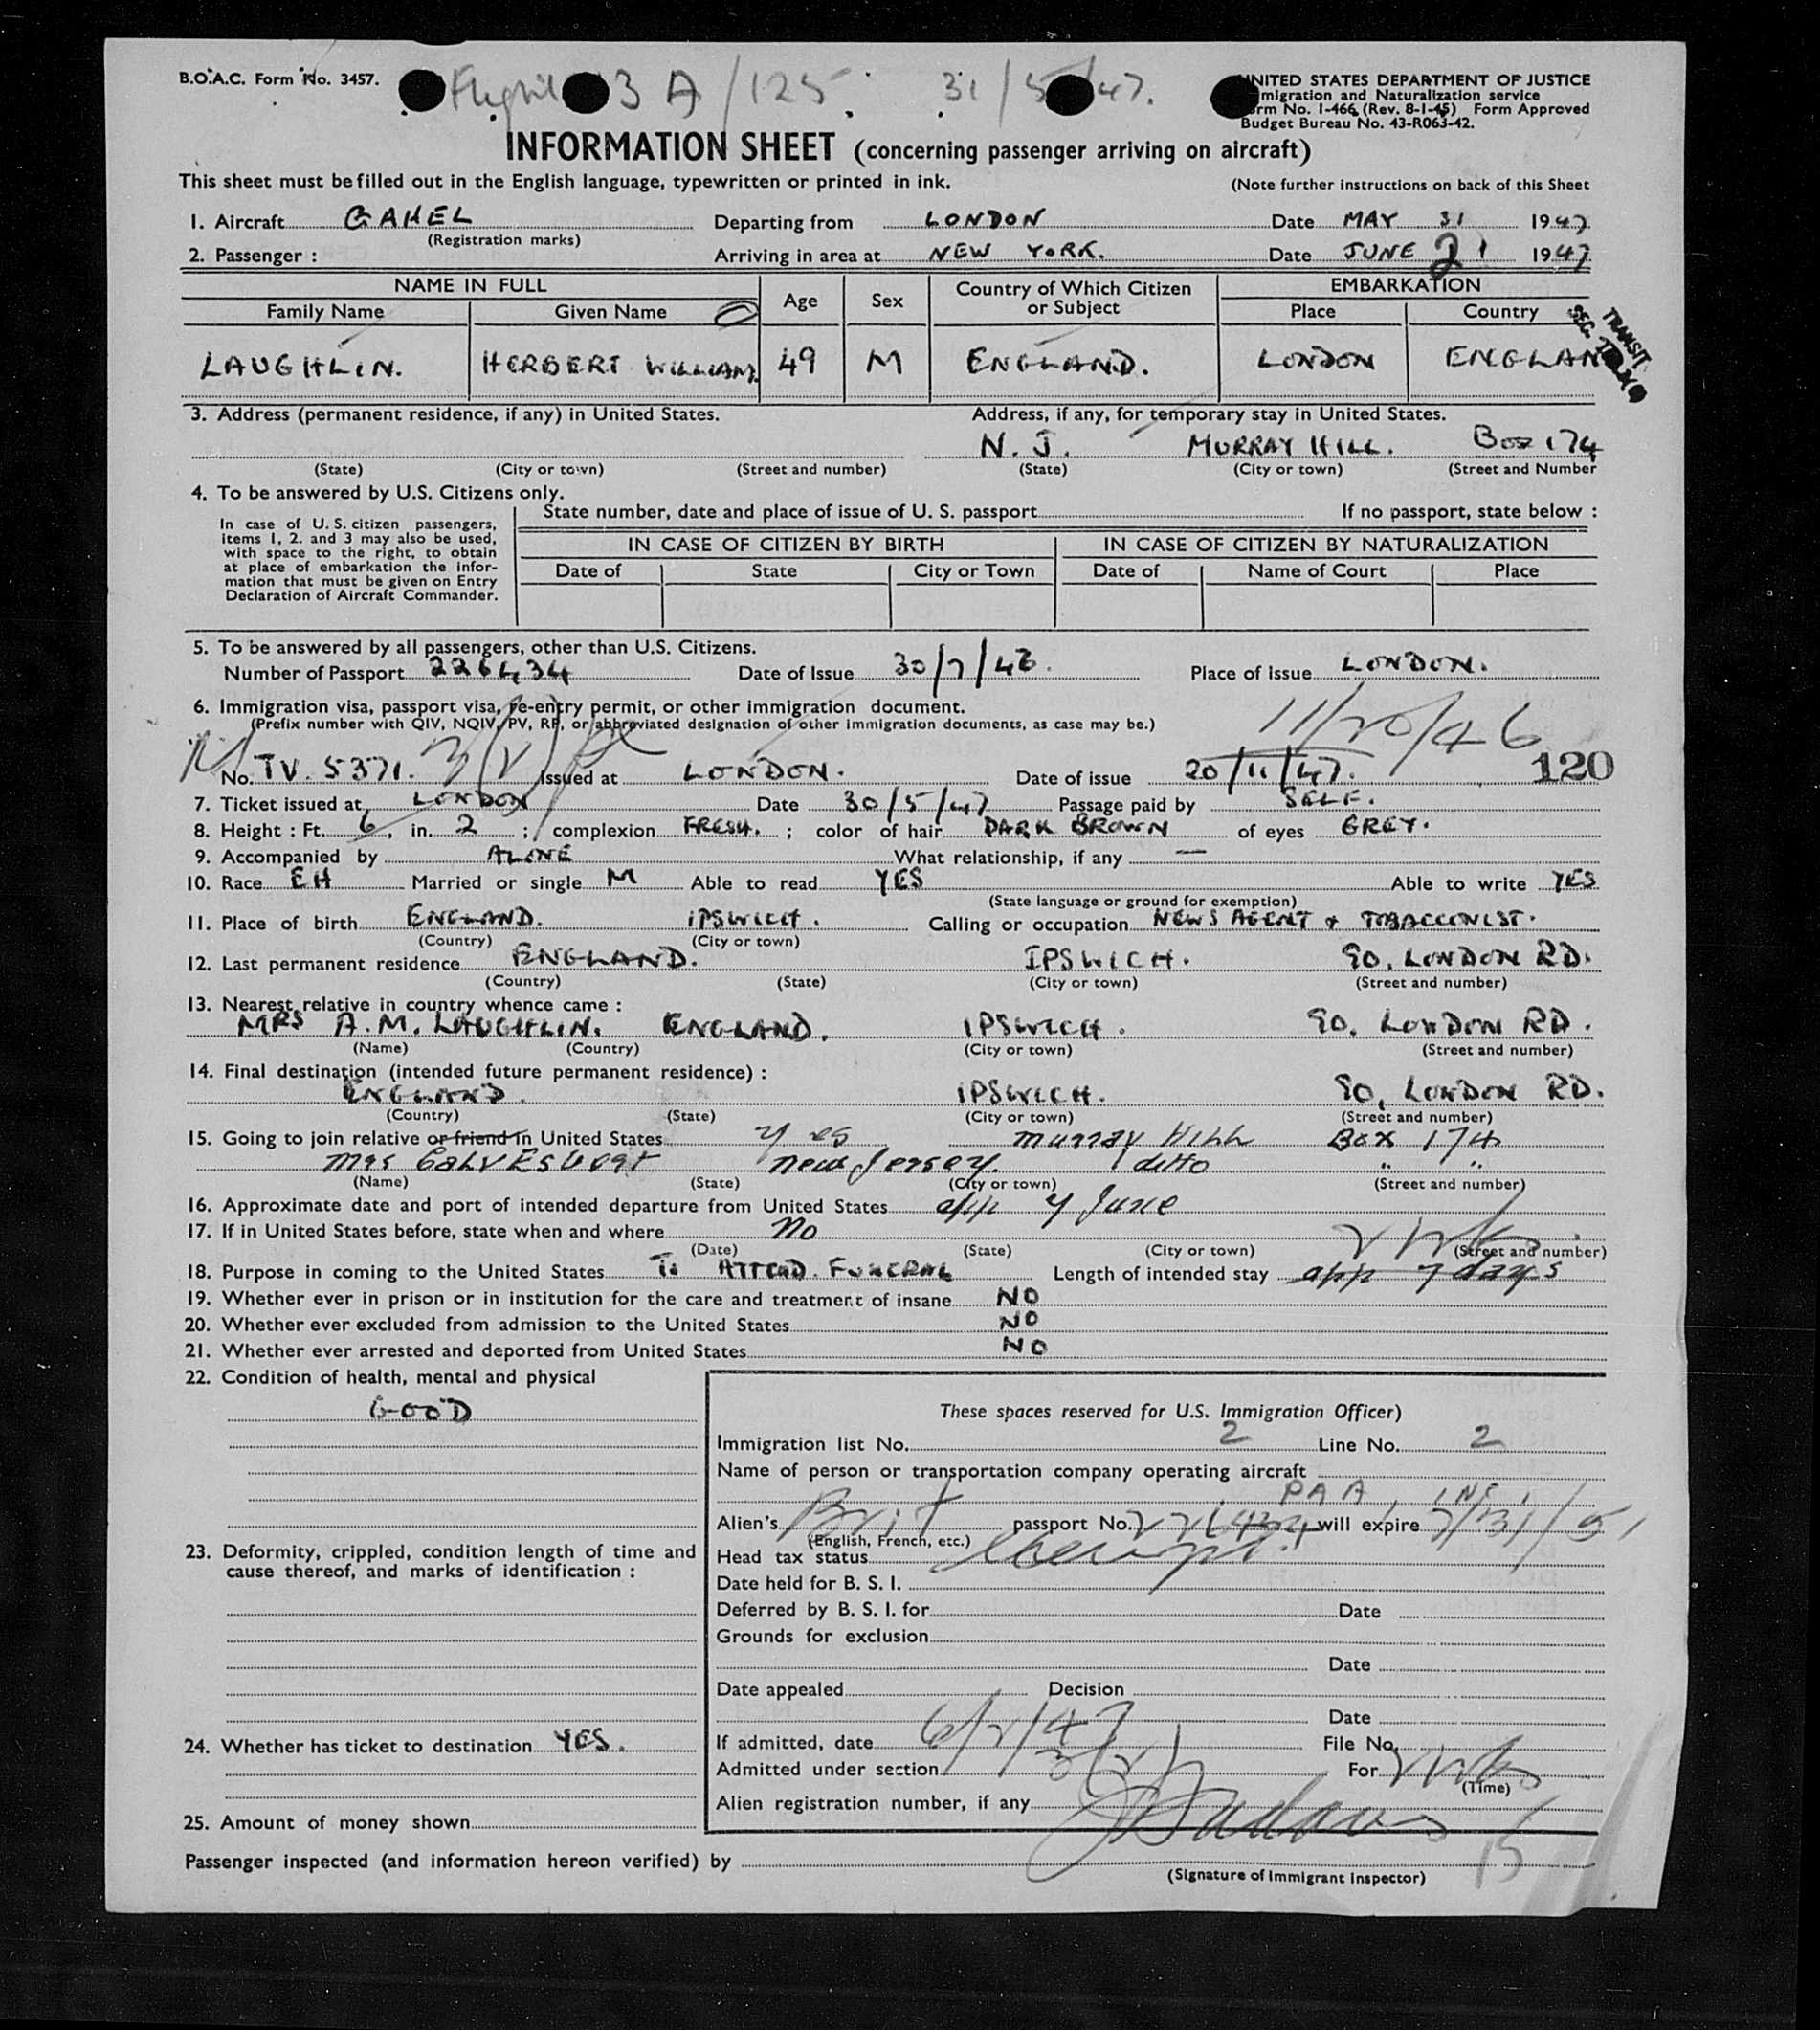 B.O.A.C. Form No. 3457.
Flight 3 A/125. 31/5/47.
UNITED STATES DEPARTMENT OF JUSTICE
Immigration and Naturalization service
Form No. I-466 (Rev. 8-1-45) Form Approved
Budget Bureau No. 43-R063-42.
INFORMATION SHEET (concerning passenger arriving on aircraft)
This sheet must be filled out in the English language, typewritten or printed in ink. (Note further instructions on back of this Sheet
1. Aircraft GAHEL Departing from LONDON Date MAY 31 1947
(Registration marks)
2. Passenger : Arriving in area at NEW YORK. Date JUNE 21 1947
NAME IN FULL Age Sex Country of Which Citizen or Subject EMBARKATION
Family Name Given Name Place Country
LAUGHLIN. HERBERT WILLIAM. 49 M ENGLAND. LONDON ENGLAN
TRANSIT
3. Address (permanent residence, if any) in United States. Address, if any, for temporary stay in United States.
N. J. MURRAY HILL. Box 174
(State) (City or town) (Street and number) (State) (City or town) (Street and Number
4. To be answered by U.S. Citizens only.
State number, date and place of issue of U. S. passport If no passport, state below :
In case of U. S. citizen passengers,
items 1, 2. and 3 may also be used,
with space to the right, to obtain
at place of embarkation the infor-
mation that must be given on Entry
Declaration of Aircraft Commander.
IN CASE OF CITIZEN BY BIRTH IN CASE OF CITIZEN BY NATURALIZATION
Date of State City or Town Date of Name of Court Place
5. To be answered by all passengers, other than U.S. Citizens.
Number of Passport 226434 Date of Issue 30/7/46. Place of issue LONDON.
6. Immigration visa, passport visa, re-entry permit, or other immigration document.
(Prefix number with QIV, NQIV, PV, RP, or abbreviated designation of other immigration documents, as case may be.)
11/20/46
No. TV. 5371. 3(2) Issued at LONDON. Date of issue 20/11/47. 120
7. Ticket issued at LONDON Date 30/5/47 Passage paid by SELF.
8. Height : Ft. 6, in. 2 ; complexion FRESH. ; color of hair DARK BROWN of eyes GREY.
9. Accompanied by ALONE What relationship, if any —
10. Race EH Married or single M Able to read YES Able to write YES
(State language or ground for exemption)
11. Place of birth ENGLAND. IPSWICH. Calling or occupation NEWS AGENT & TOBACCONIST.
(Country) (City or town)
12. Last permanent residence ENGLAND. IPSWICH. 90, LONDON RD.
(Country) (State) (City or town) (Street and number)
13. Nearest relative in country whence came :
MRS A. M. LAUGHLIN. ENGLAND. IPSWICH. 90, LONDON RD.
(Name) (Country) (City or town) (Street and number)
14. Final destination (intended future permanent residence) :
ENGLAND. IPSWICH. 90, LONDON RD.
(Country) (State) (City or town) (Street and number)
15. Going to join relative or friend in United States Yes Murray Hill Box 174
Mrs New Jersey. ditto " "
(Name) (State) (City or town) (Street and number)
16. Approximate date and port of intended departure from United States app 7 June
17. If in United States before, state when and where No 2 wks
(Date) (State) (City or town) (Street and number)
18. Purpose in coming to the United States To ATTEND FUNERAL Length of intended stay app 7 days
19. Whether ever in prison or in institution for the care and treatment of insane NO
20. Whether ever excluded from admission to the United States NO
21. Whether ever arrested and deported from United States NO
22. Condition of health, mental and physical
GOOD
These spaces reserved for U.S. Immigration Officer)
Immigration list No. 2 Line No. 2
Name of person or transportation company operating aircraft
PAA, INC,
Alien's Brit passport No. 226434 will expire 7/31/51
(English, French, etc.)
Head tax status exempt.
23. Deformity, crippled, condition length of time and
cause thereof, and marks of identification :
Date held for B. S. I.
Deferred by B. S. I. for Date
Grounds for exclusion
Date
Date appealed Decision
Date
24. Whether has ticket to destination YES.
If admitted, date 6/2/47 File No.
Admitted under section 3(2) For 2 wks
(Time)
Alien registration number, if any
25. Amount of money shown
15
Passenger inspected (and information hereon verified) by
(Signature of Immigrant Inspector)